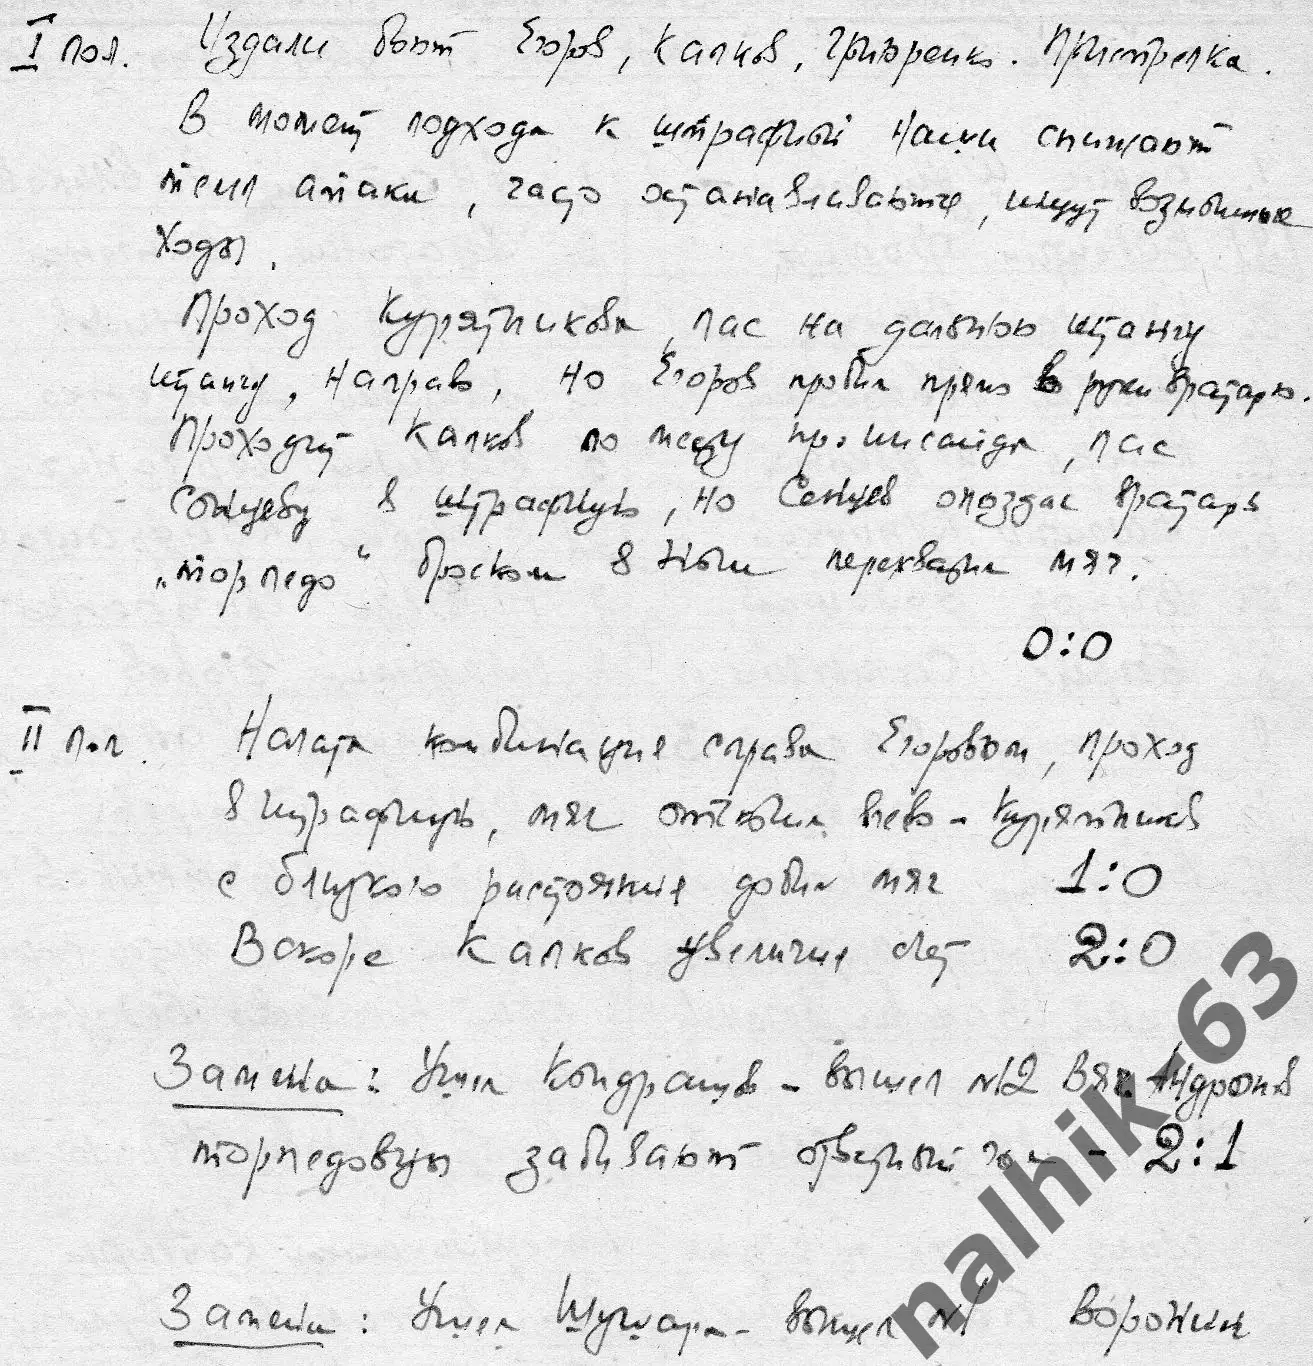 I пол. Издали бьют Егоров, Калков, Григоренко. Пристрелка.
В момент подхода к штрафной наши снижают
темп атаки, часто останавливаются, ищут возможные
ходы.
Проход Курятникова, пас на дальнюю штангу
штангу, направо, но Егоров пробил прямо в руки вратарю.
Проходит Калков по месту, пас
Сонцеву в штрафную, но Сонцев опоздал вратарь
„торпедо“ броском в ноги перехватил мяч.
0:0
II пол. Начата комбинация справа Егоровым, проход
в штрафную, мяч отскочил влево - Курятников
с близкого расстояния добил мяч 1:0
Вскоре Калков увеличил счет 2:0
Замена: Ушел Кондрашов - вышел №12 Вяч. Андронов
торпедовцы забивают ответный гол - 2:1
Замена: Ушел Шушара - вышел №1 Воронин
nalhik-63